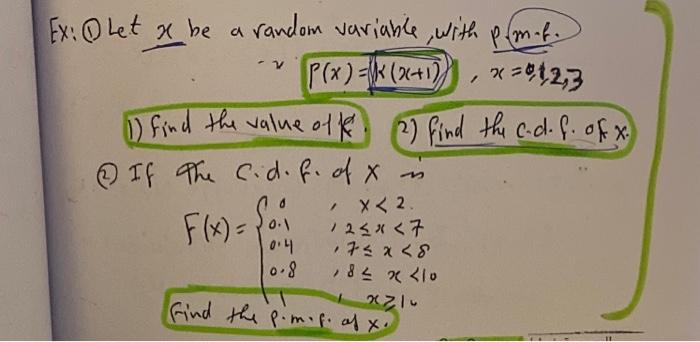 Ex: ① Let x be a random variable, with p.m.f.
P(x) = k(x+1) , x = 0,1,2,3
1) find the value of k. 2) find the c.d.f. of x.
② If The C.d.f. of X is
F(x) = { 0 , x < 2.
0.1 , 2 ≤ x < 7
0.4 , 7 ≤ x < 8
0.8 , 8 ≤ x < 10
1 , x ≥ 10
Find the p.m.f. of x.